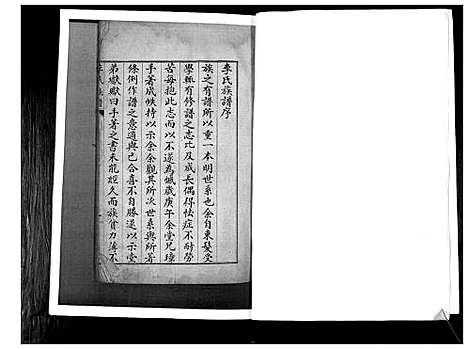 李氏族譜序
族之有譜所以重一本明世系也余自束髮受
學輒有修譜之志比及長偶得怯症不耐勞
苦每抱此志而以不遂為憾歲庚午余堂兄璋
手著成帙持以示余余觀其所次世系與所著
條例作譜之意適與己合喜不自勝遂以示堂
弟獻獻曰手著之書未能經久而族貧力薄不